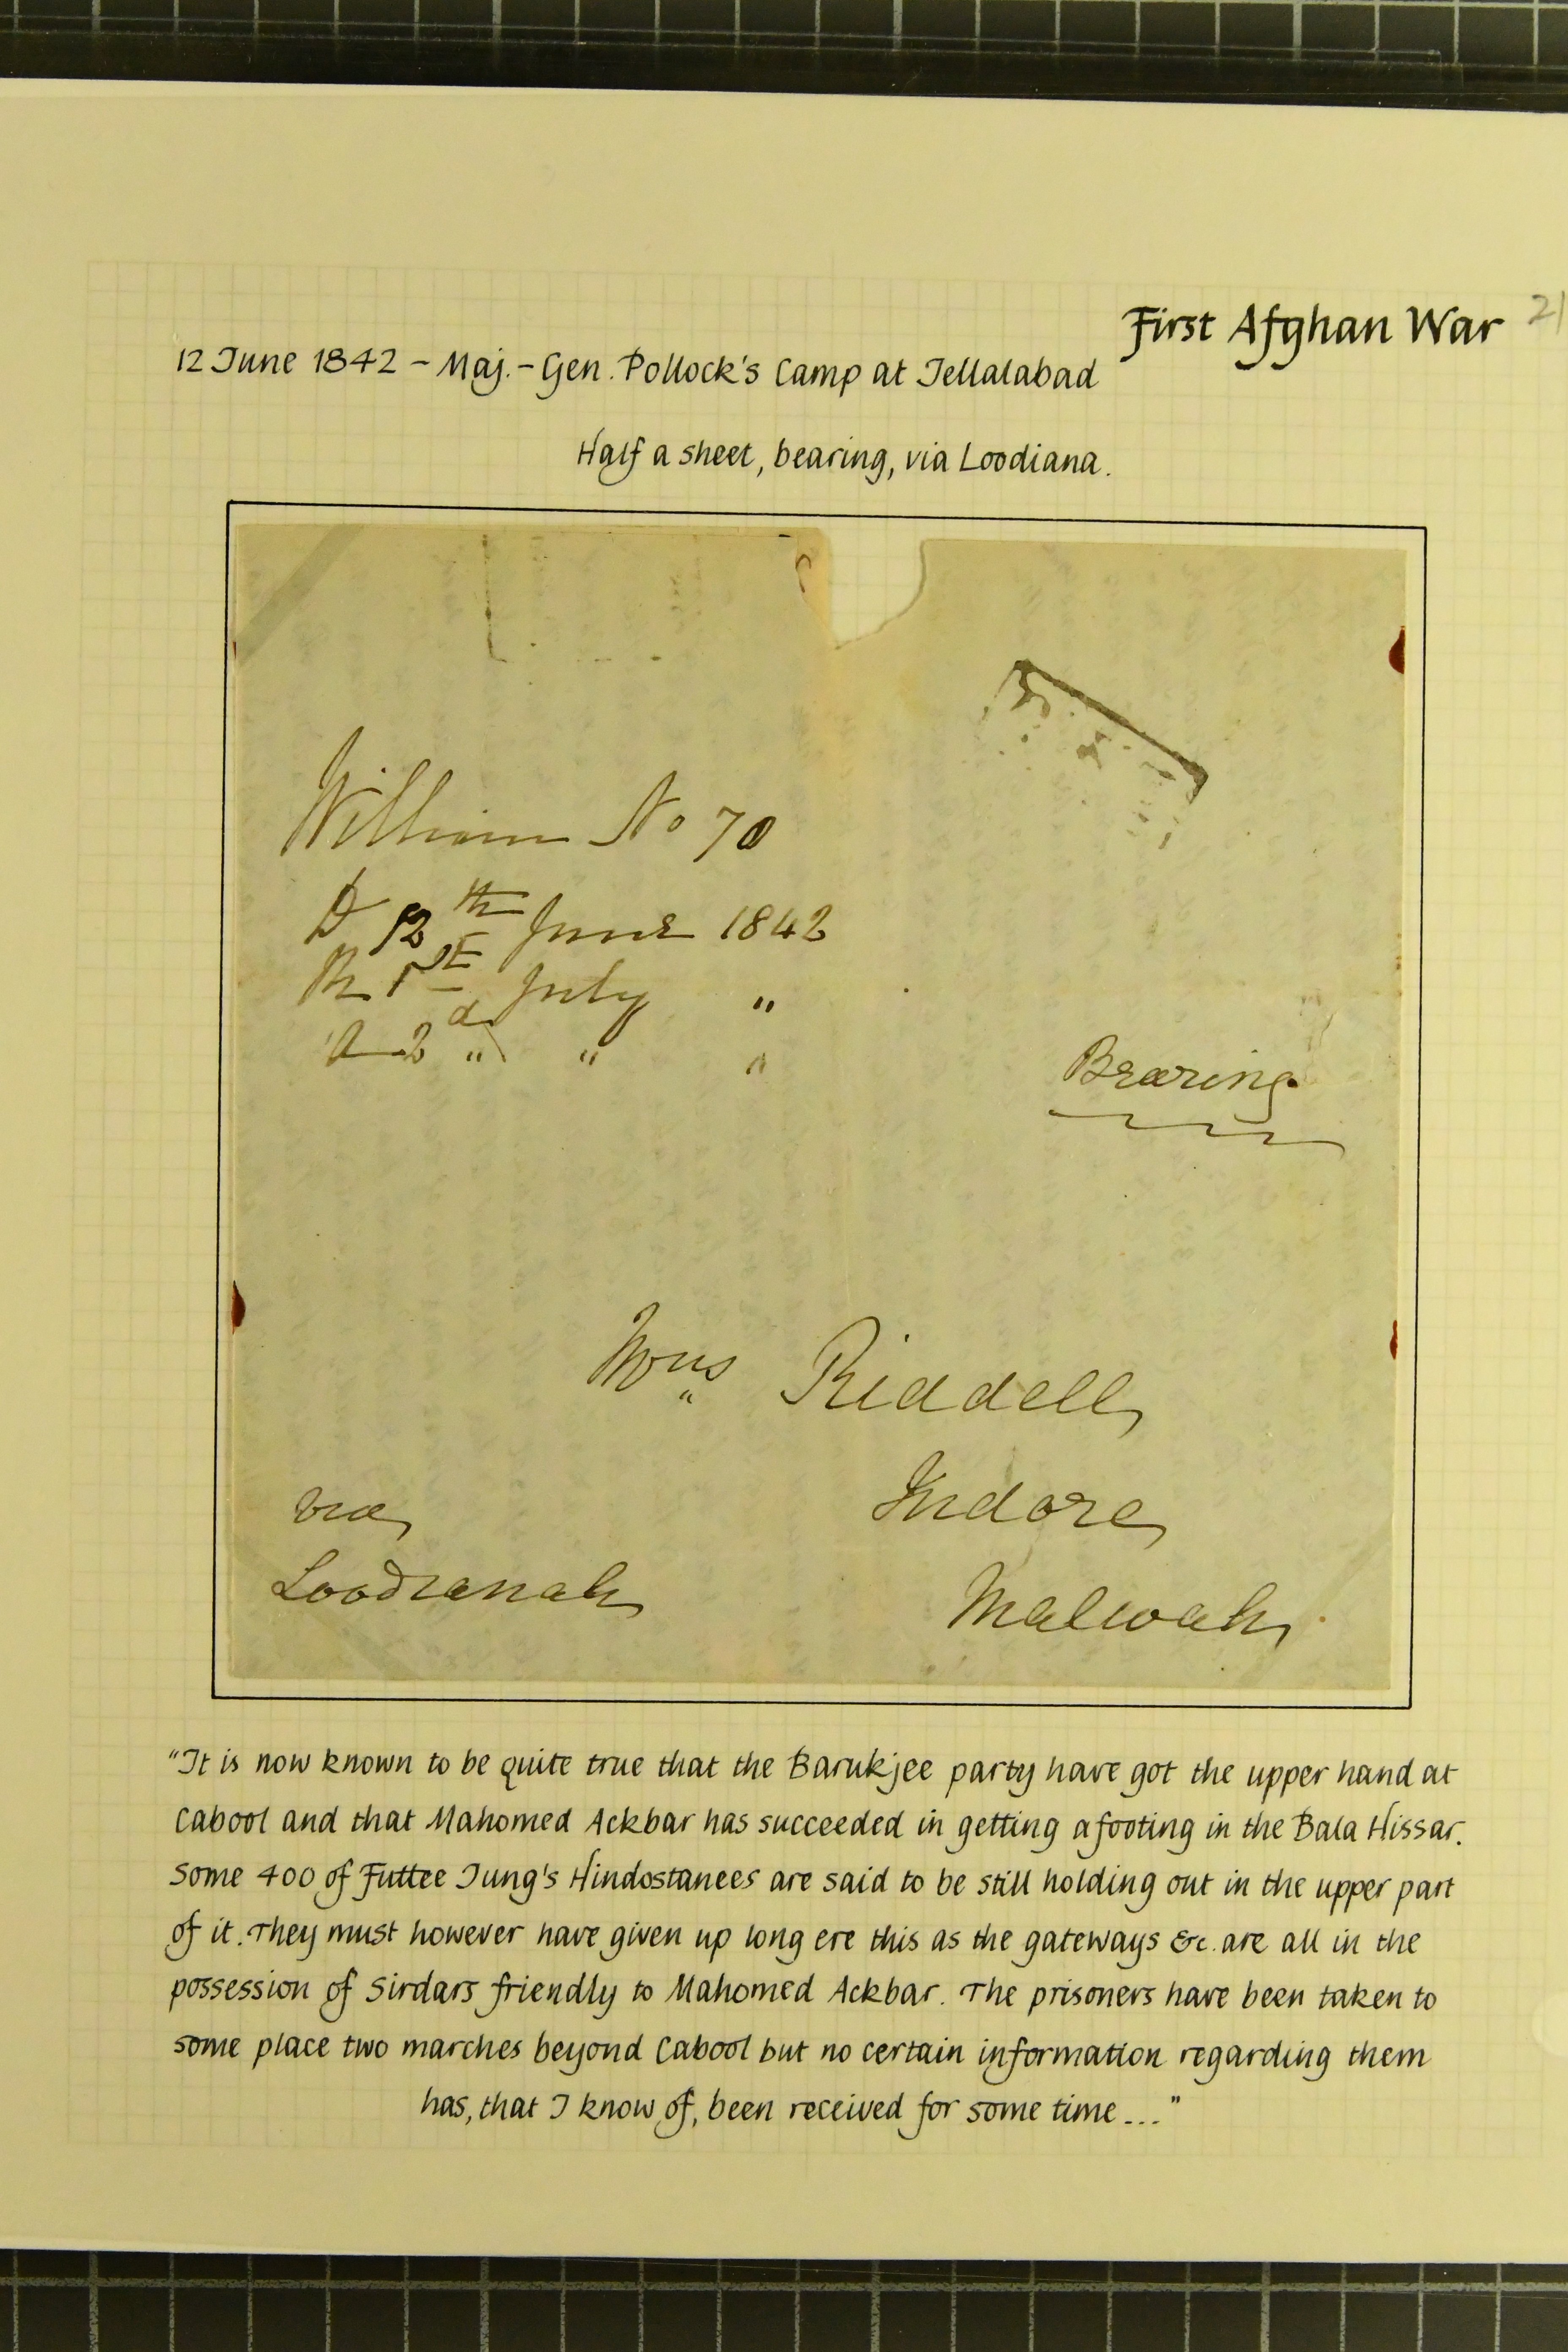 First Afghan War
21
12 June 1842 - Maj. - Gen. Pollock's Camp at Jellalabad
Half a sheet, bearing, via Loodiana.
William No 70
D 12th June 1842
R 1st July "
A 2d " " "
Bearing
Mrs Riddell
Indore
Malwah
via
Loodianah
"It is now known to be quite true that the Barukjee party have got the upper hand at
Cabool and that Mahomed Ackbar has succeeded in getting a footing in the Bala Hissar.
Some 400 of Futtee Jung's Hindostanees are said to be still holding out in the upper part
of it. They must however have given up long ere this as the gateways &c. are all in the
possession of Sirdars friendly to Mahomed Ackbar. The prisoners have been taken to
some place two marches beyond Cabool but no certain information regarding them
has, that I know of, been received for some time ..."